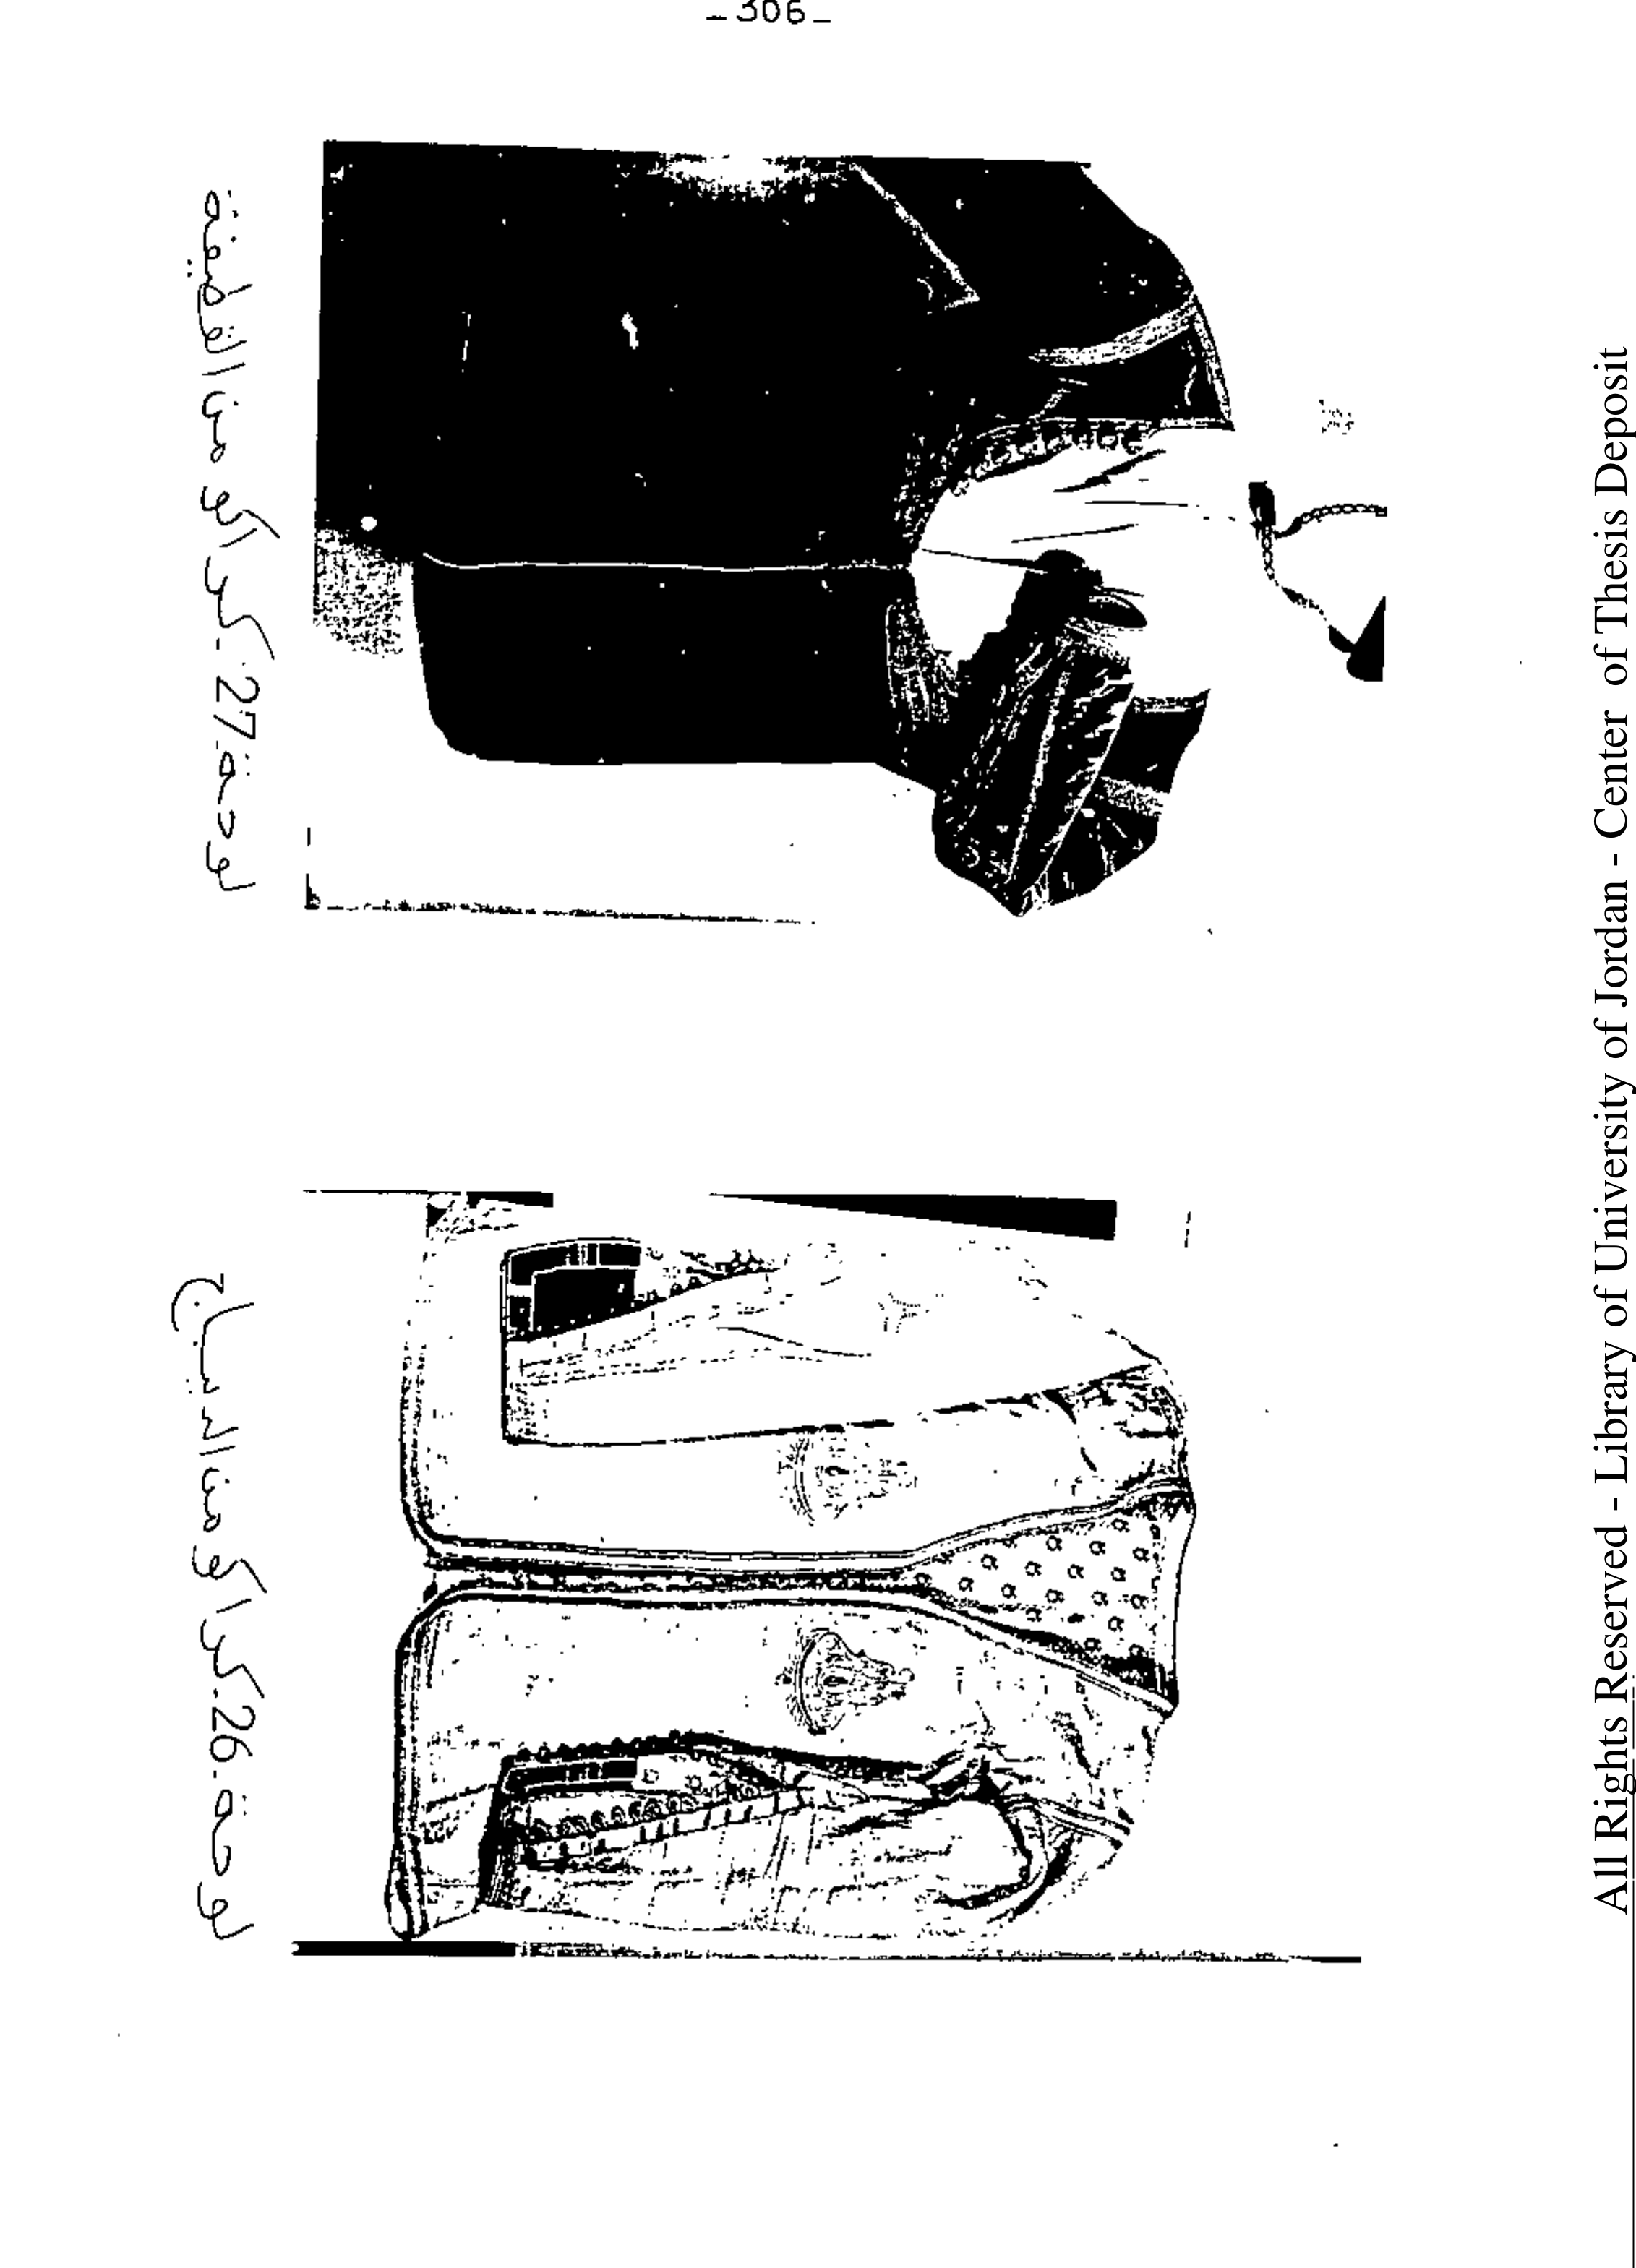 _306_
لوحة.27.كر اكو من القطيفة
لوحة.26.كر اكو من الديباج
All Rights Reserved - Library of University of Jordan - Center of Thesis Deposit